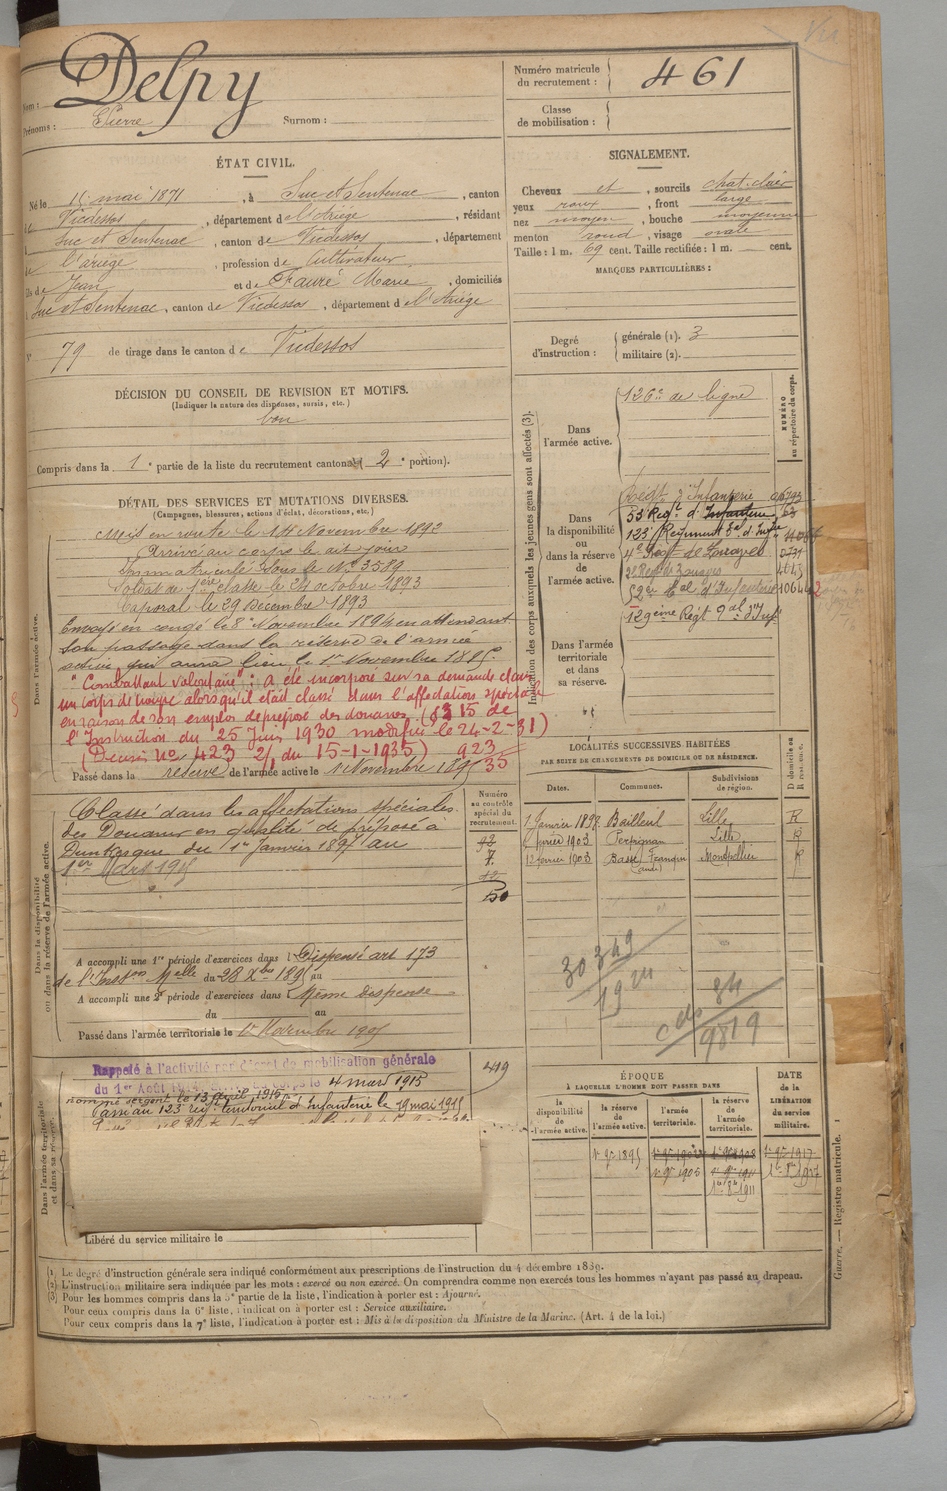 Vu
Nom : Delpy
Prénoms : Pierre Surnom :
Numéro matricule du recrutement : 461
Classe de mobilisation :
ÉTAT CIVIL.
Né le 15 mai 1871, à Suc et Sentenac, canton
de Vicdessos, département de l'Ariège, résidant
Suc et Sentenac, canton de Vicdessos, département
de l'ariège, profession de Cultivateur
fils de Jean et de Fauré Marie, domiciliés
Suc et Sentenac, canton de Vicdessos, département d el'Ariège
N° 79 de tirage dans le canton de Vicdessos
SIGNALEMENT.
Cheveux et, sourcils chat. clair
yeux roux, front large
nez moyen, bouche moyenne
menton rond, visage ovale
Taille : 1 m. 69 cent. Taille rectifiée : 1 m. cent.
MARQUES PARTICULIÈRES :
Degré d'instruction : générale (1). 3
militaire (2).
DÉCISION DU CONSEIL DE REVISION ET MOTIFS.
(Indiquer la nature des dispenses, sursis, etc.)
bon
Compris dans la 1e partie de la liste du recrutement cantonal (2e portion).
DÉTAIL DES SERVICES ET MUTATIONS DIVERSES.
(Campagnes, blessures, actions d'éclat, décorations, etc.)
Dans l'armée active.
Mis en route le 14 Novembre 1892
Arrivé au corps le dit jour
Immatriculé sous le No 3589
Soldat de 1ère classe le 21 octobre 1893
Caporal le 29 Décembre 1893
Envoyé en congé le 8 Novembre 1894 en attendant
son passage dans la réserve de l'armée
active qui aura lieu le 1er Novembre 1895.
"Combattant volontaire" : a été incorporé sur sa demande dans
un corps de troupe alorsqu'il était classé dans l'affectation spéciale
en raison de son emploi de préposé des douanes. (§ 15 de
l'Instruction du 25 Juin 1930 modifiée le 24-2-31)
(Décision No 423 2/1 du 15-1-1935) 923
35
Passé dans la réserve de l'armée active le 1 Novembre 1895
Indication des corps auxquels les jeunes gens sont affectés (3).
NUMÉRO au répertoire du corps.
Dans l'armée active. 126e de ligne
Dans la disponibilité ou dans la réserve de l'armée active.
Régt d'Infanterie
53 Régt d'Infanterie
123 Régiment d'Infie
4e Régt de Zouaves
2e Régt de Zouaves 4043
52e al d'Infanterie 10644
129ème Régt al d'Inf
Dans l'armée territoriale et dans sa réserve.
LOCALITÉS SUCCESSIVES HABITÉES
PAR SUITE DE CHANGEMENTS DE DOMICILE OU DE RÉSIDENCE.
Dates. Communes. Subdivisions de région. D domicile ou R résidence.
1 Janvier 1898 Bailleul Lille R
février 1903 Perpignan Lille R
13 février 1903 Basse Franqui (aude) Montpellier R
Dans la disponibilité ou dans la réserve de l'armée active.
Numéro au contrôle spécial du recrutement.
92
7.
42
50
Classé dans les affectations spéciales
des Douanes en qualité de préposé à
Dunkerque du 1er Janvier 1895 au
1er Mars 1915
A accompli une 1re période d'exercices dans l Dispensé art 173
de l'Inston Melle du 28 Xbre 1895 au
A accompli une 2e période d'exercices dans l Même dispense
du au
Passé dans l'armée territoriale le 1er Novembre 1905
30 349
19
84
9819
Dans l'armée territoriale et dans sa réserve.
Rappelé à l'activité par décret de mobilisation générale
du 1er Août 1914. corps le 4 mars 1915
nommé sergent le 13 avril 1915
Passé au 123 rég. territorial d'Infanterie le 19 mai 1915
419
Libéré du service militaire le
ÉPOQUE
À LAQUELLE L'HOMME DOIT PASSER DANS
la disponibilité de l'armée active. la réserve de l'armée active. l'armée territoriale. la réserve de l'armée territoriale.
DATE de la LIBÉRATION du service militaire.
1er 9bre 1895 1er 9bre 1908 1er 9bre 1917
1er 9bre 1905 1er 9bre 1911 1er 8bre 1917
1er 8bre 1911
(1) Le degré d'instruction générale sera indiqué conformément aux prescriptions de l'instruction du 4 décembre 1889.
(2) L'instruction militaire sera indiquée par les mots : exercé ou non exercé. On comprendra comme non exercés tous les hommes n'ayant pas passé au drapeau.
(3) Pour les hommes compris dans la 5e partie de la liste, l'indication à porter est : Ajourné.
Pour ceux compris dans la 6e liste, l'indication à porter est : Service auxiliaire.
Pour ceux compris dans la 7e liste, l'indication à porter est : Mis à la disposition du Ministre de la Marine. (Art. 4 de la loi.)
Guerre. — Registre matricule.